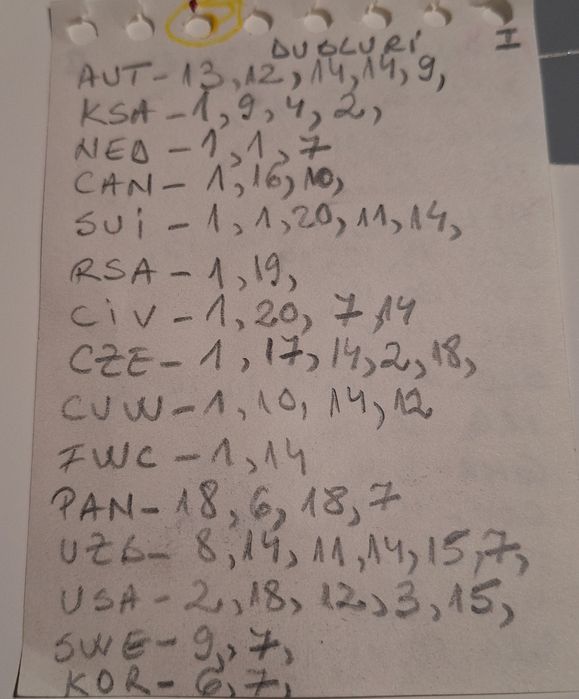 DUBLURI I
AUT-13,12,14,14,9,
KSA-1,9,4,2,
NED-1,1,7
CAN-1,16,10,
SUi-1,1,20,11,14,
RSA-1,19,
CiV-1,20,7,14
CZE-1,17,14,2,18,
CUW-1,10,14,12
FWC-1,14
PAN-18,6,18,7
UZB-8,14,11,14,15,7,
USA-2,18,12,3,15,
SWE-9,7,
KOR-6,7,